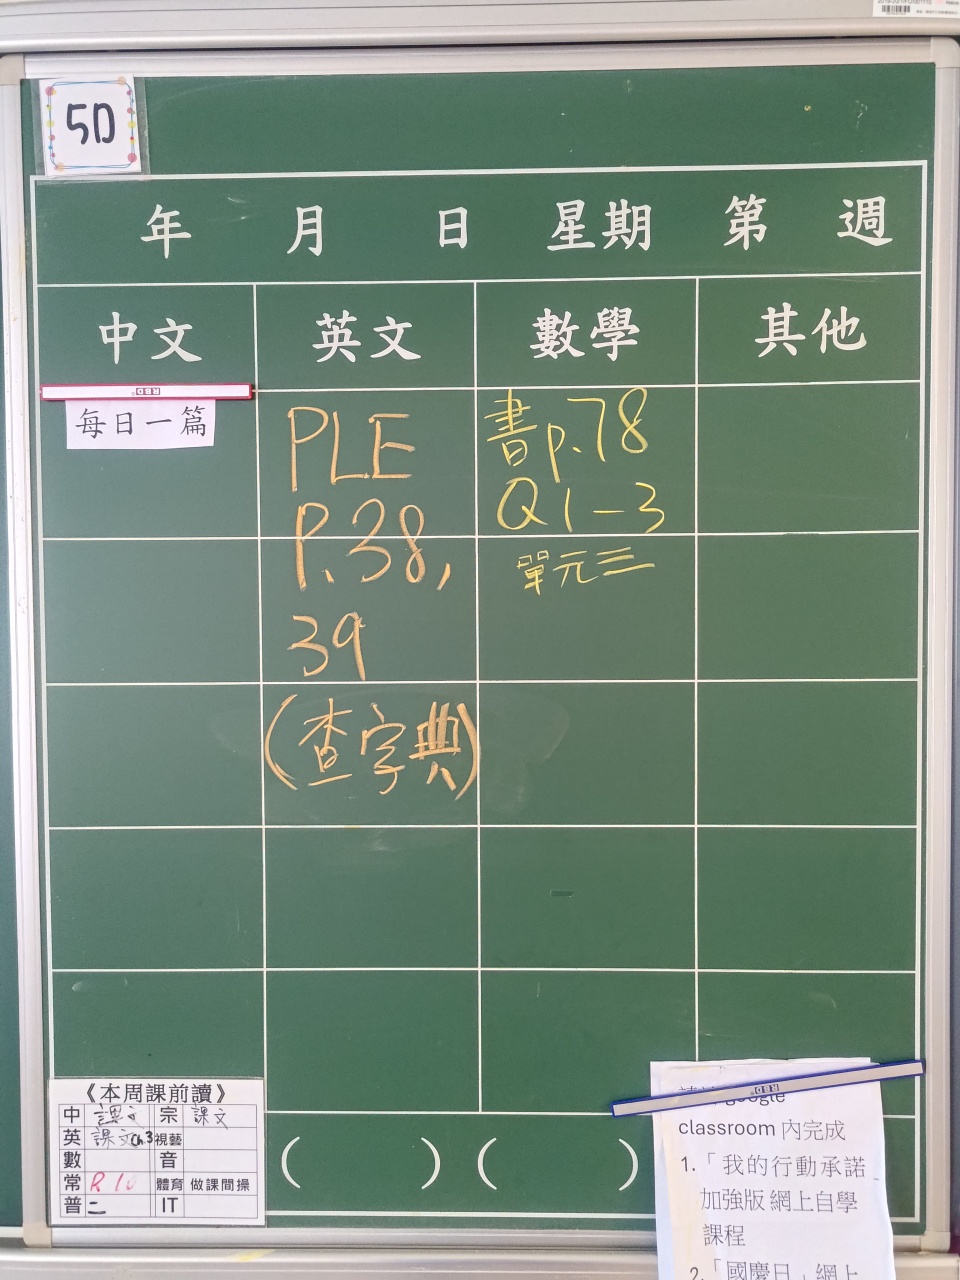 5D
年 月 日 星期 第 週
中文 英文 數學 其他
每日一篇
PLE
P.38,
39
(查字典)
書p.78
Q1-3
單元三
《本周課前讀》
中 課文 宗 課文
英 課文ch3 視藝
數 音
常 P.10 體育 做課間操
普 二 IT
( ) ( )
google
classroom 內完成
1.「我的行動承諾
加強版 網上自學
課程
2.「國慶日」網上